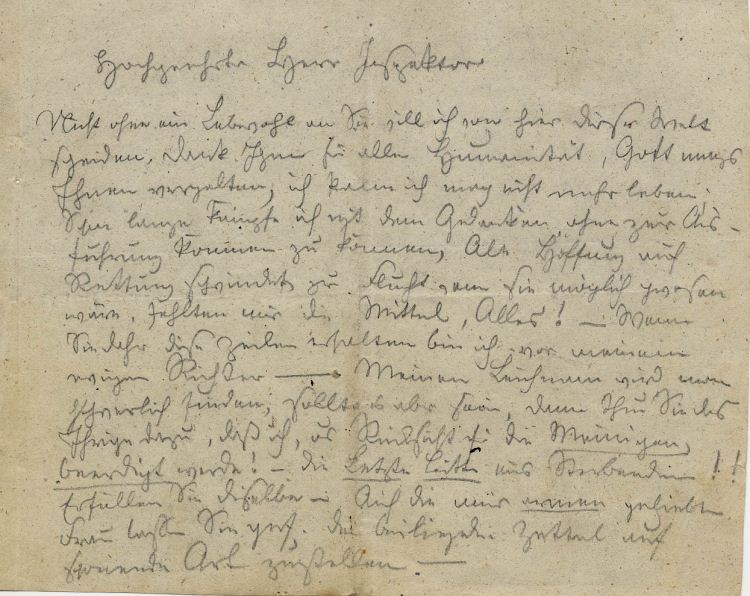 Hochgeehrter Herr Inspektor
Nicht ohne ein Lebewohl an Sie will ich von hier dieser Welt
scheiden. Dank Ihnen für alle Humanität, Gott mags
Ihnen vergelten, ich kann ich mag nicht mehr leben;
Schon lange kämpfe ich mit dem Gedanken, ohne zur Aus-
führung kommen zu können, Alle Hoffnung auf
Rettung schwindet, zu Flucht, wenn sie möglich gewesen
wäre, fehlten mir die Mittel, Alles! — Wenn
Sie diese Zeilen erhalten bin ich vor meinem
ewigen Richter — Meinen Leichnam wird man
schwerlich finden, sollte es aber sein, dann thun Sie das
Ihrige dazu, daß ich, aus Rücksicht für die Meinigen,
beerdigt werde! — die Letzte Bitte eines Sterbenden!!
Erfüllen Sie dieselbe — Auch die mir armen geliebten
Frau lassen Sie gef. die beiliegenden Zettel auf
schonende Art zustellen —